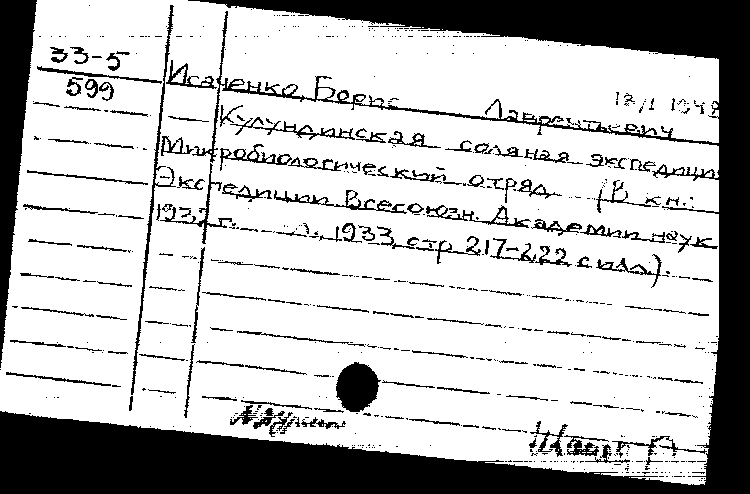 33-5
599
18/I 1948
Исаченко, Борис Лаврентьевич
Кулундинская соляная экспедиция
Микробиологический отряд (В кн.:
Экспедиции Всесоюзн. Академии наук
1932 г. Л., 1933, стр 217-222 с илл.).